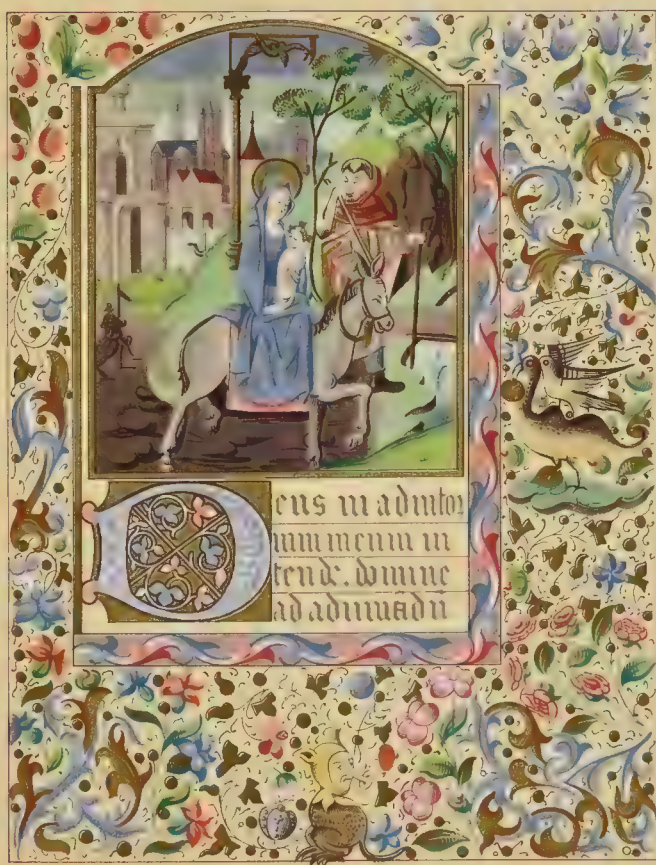 Deus in adiutor
ium meum in
tende. domine
ad adiuuādū